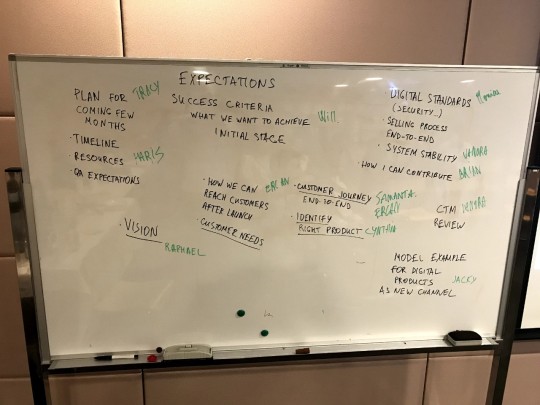 EXPECTATIONS
PLAN FOR TRACY
COMING FEW
MONTHS
· TIMELINE
· RESOURCES
· QA EXPECTATIONS
SUCCESS CRITERIA
WHAT WE WANT TO ACHIEVE Will
INITIAL STAGE
DIGITAL STANDARDS
(SECURITY...)
· SELLING PROCESS
END-TO-END
· SYSTEM STABILITY
· HOW I CAN CONTRIBUTE BRIAN
· VISION
RAPHAEL
· HOW WE CAN
REACH CUSTOMERS
AFTER LAUNCH
· CUSTOMER NEEDS
· CUSTOMER JOURNEY
END-TO-END
· IDENTIFY
RIGHT PRODUCT CYNTHIA
CTM
REVIEW
MODEL EXAMPLE
FOR DIGITAL
PRODUCTS JACKY
AS NEW CHANNEL